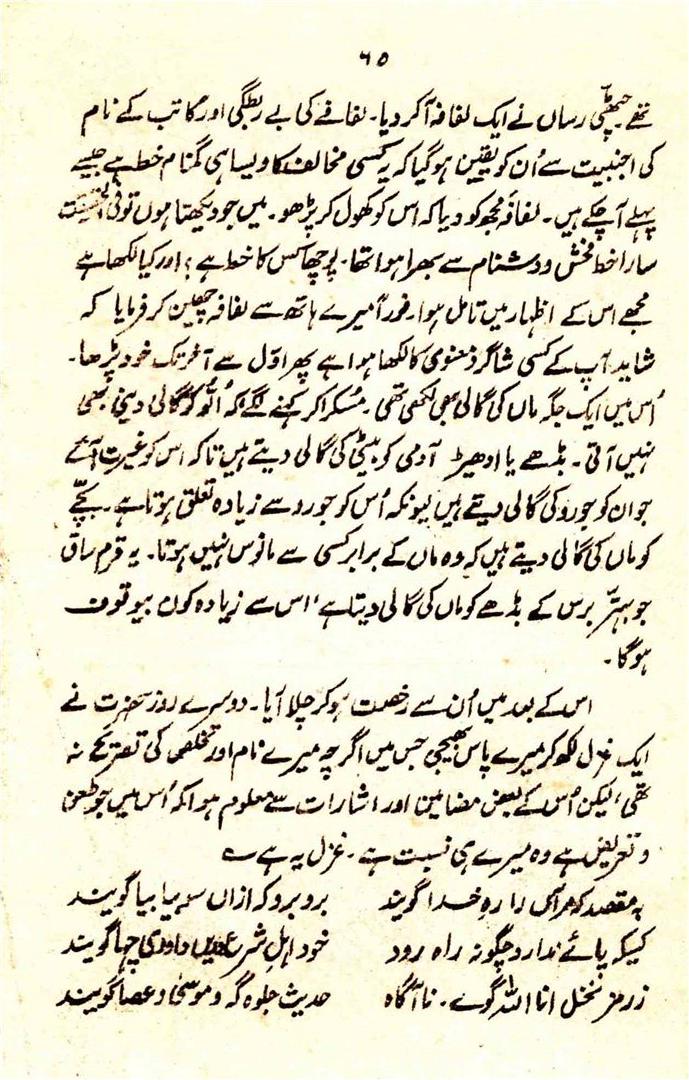 ۶۵
تھے چٹھی رساں نے ایک لفافہ آکر دیا۔ لفافے کی بے ربطگی اور کاتب کے نام
کی اجنبیت سے اُن کو یقین ہو گیا کہ یہ کسی مخالف کا ویسا ہی گمنام خط ہے جیسے
پہلے آ چکے ہیں۔ لفافہ مجھ کو دیا کہ اس کو کھول کر پڑھو۔ میں جو دیکھتا ہوں تو فی الحقیقت
سارا خط فحش و دشنام سے بھرا ہوا تھا۔ پوچھا کس کا خط ہے؟ اور کیا لکھا ہے
مجھے اس کے اظہار میں تامل ہوا۔ فوراً میرے ہاتھ سے لفافہ چھین کر فرمایا کہ
شاید آپ کے کسی شاگرد معنوی کا لکھا ہوا ہے پھر اوّل سے آخر تک خود پڑھا۔
اُس میں ایک جگہ ماں کی گالی بھی لکھی تھی۔ مُسکرا کر کہنے لگے کہ اُلّو کو گالی دینی بھی
نہیں آتی۔ بڈھے یا ادھیڑ آدمی کو بیٹی کی گالی دیتے ہیں تاکہ اس کو غیرت آئے
جوان کو جورو کی گالی دیتے ہیں کیونکہ اُس کو جورو سے زیادہ تعلق ہوتا ہے۔ بچّے
کو ماں کی گالی دیتے ہیں کہ وہ ماں کے برابر کسی سے مانوس نہیں ہوتا۔ یہ قرم ساق
جو بہتر برس کے بڈھے کو ماں کی گالی دیتا ہے، اس سے زیادہ کون بیوقوف
ہوگا۔
اس کے بعد میں اُن سے رخصت ہو کر چلا آیا۔ دوسرے روز حضرت نے
ایک غزل لکھ کر میرے پاس بھیجی جس میں اگرچہ میرے نام اور تخلص کی تصریح نہ
تھی، لیکن اُس کے بعض مضامین اور اشارات سے معلوم ہوا کہ اُس میں جو طعن
و تعریض ہے وہ میرے ہی نسبت ہے۔ غزل یہ ہے
بہ مقصد کہ مر آں را رہِ خدا گویند برو برو کہ ازاں سو بیا بیا گویند
کسیکہ پائے ندارد چگونہ راہ رود خود اہلِ شرع دریں داوری چہا گویند
ز رمز نخل انا اللہ گوے۔ نا آگاہ حدیث جلوہ گہ و موسیٰ و عصا گویند